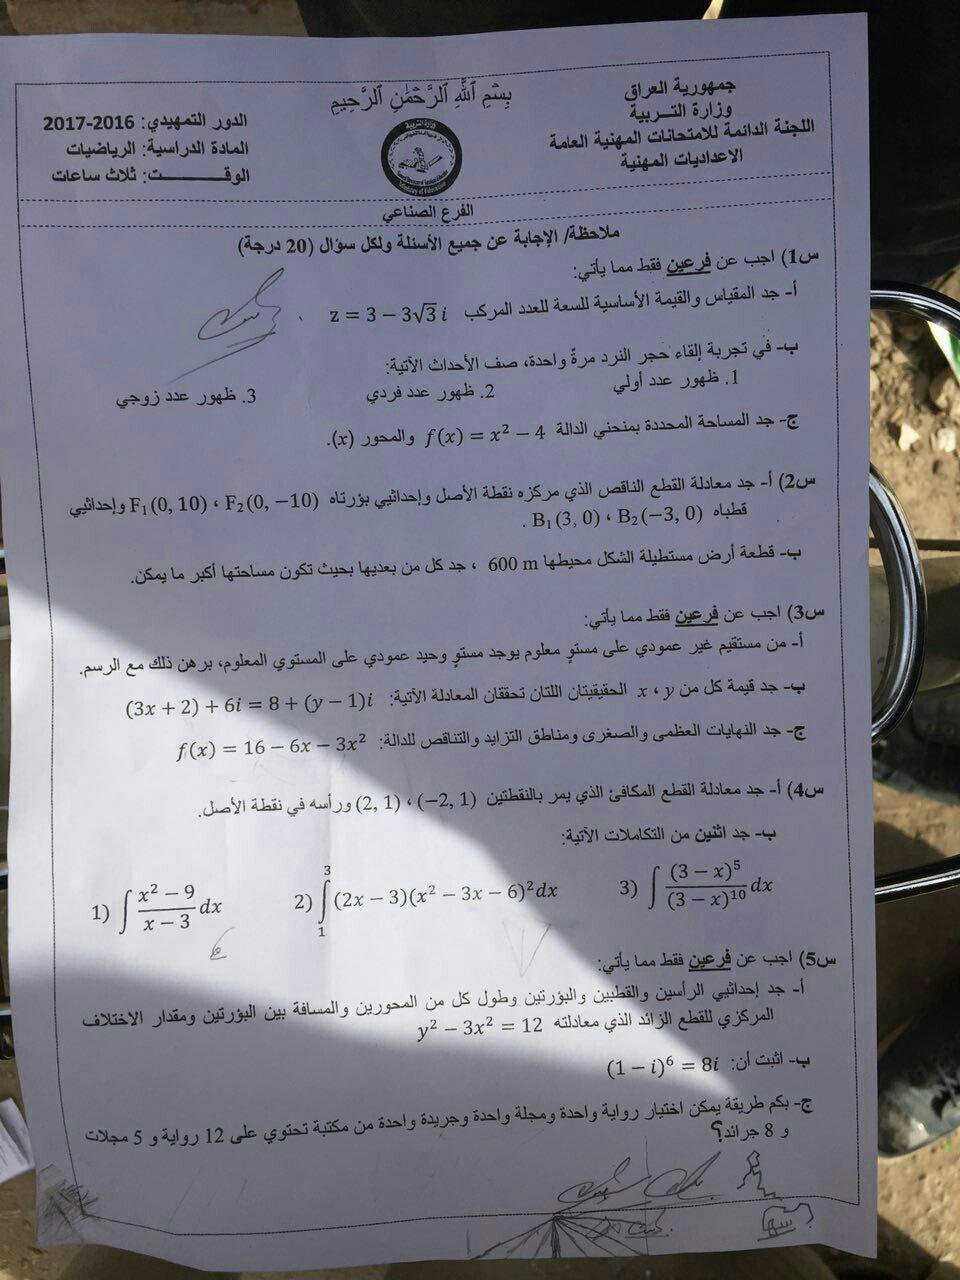 جمهورية العراق
وزارة التـــربية
اللجنة الدائمة للامتحانات المهنية العامة
الاعداديات المهنية
بِسْمِ ٱللَّٰهِ ٱلرَّحْمَٰنِ ٱلرَّحِيمِ
وزارة التربية
Ministry of Education
الدور التمهيدي: 2016-2017
المادة الدراسية: الرياضيات
الوقــــــــت: ثلاث ساعات
الفرع الصناعي
ملاحظة/ الإجابة عن جميع الأسئلة ولكل سؤال (20 درجة)
س1) اجب عن فرعين فقط مما يأتي:
أ- جد المقياس والقيمة الأساسية للسعة للعدد المركب z = 3 − 3√3 i .
ب- في تجربة إلقاء حجر النرد مرةً واحدة، صف الأحداث الآتية:
1. ظهور عدد أولي 2. ظهور عدد فردي 3. ظهور عدد زوجي
ج- جد المساحة المحددة بمنحني الدالة f(x) = x² − 4 والمحور (x).
س2) أ- جد معادلة القطع الناقص الذي مركزه نقطة الأصل وإحداثيي بؤرتاه F₁(0, 10) ، F₂(0, −10) وإحداثيي
قطباه B₁(3, 0) ، B₂(−3, 0) .
ب- قطعة أرض مستطيلة الشكل محيطها 600 m ، جد كل من بعديها بحيث تكون مساحتها أكبر ما يمكن.
س3) اجب عن فرعين فقط مما يأتي:
أ- من مستقيم غير عمودي على مستوٍ معلوم يوجد مستوٍ وحيد عمودي على المستوي المعلوم، برهن ذلك مع الرسم.
ب- جد قيمة كل من x ، y الحقيقيتان اللتان تحققان المعادلة الآتية: (3x + 2) + 6i = 8 + (y − 1)i
ج- جد النهايات العظمى والصغرى ومناطق التزايد والتناقص للدالة: f(x) = 16 − 6x − 3x²
س4) أ- جد معادلة القطع المكافئ الذي يمر بالنقطتين (2, 1) ، (−2, 1) ورأسه في نقطة الأصل.
ب- جد اثنين من التكاملات الآتية:
1) ∫ (x² − 9)/(x − 3) dx 2) ∫₁³ (2x − 3)(x² − 3x − 6)² dx 3) ∫ (3 − x)⁵/(3 − x)¹⁰ dx
س5) اجب عن فرعين فقط مما يأتي:
أ- جد إحداثيي الرأسين والقطبين والبؤرتين وطول كل من المحورين والمسافة بين البؤرتين ومقدار الاختلاف
المركزي للقطع الزائد الذي معادلته y² − 3x² = 12
ب- اثبت أن: (1 − i)⁶ = 8i
ج- بكم طريقة يمكن اختيار رواية واحدة ومجلة واحدة وجريدة واحدة من مكتبة تحتوي على 12 رواية و 5 مجلات
و 8 جرائد؟